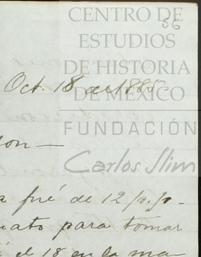 CENTRO DE
ESTUDIOS
DE HISTORIA
DE MÉXICO
FUNDACIÓN
Carlos Slim
86
Oct. 18 de 1885
on—
a fué de 12 p.p.
nato para tomar
el 18 en la ma